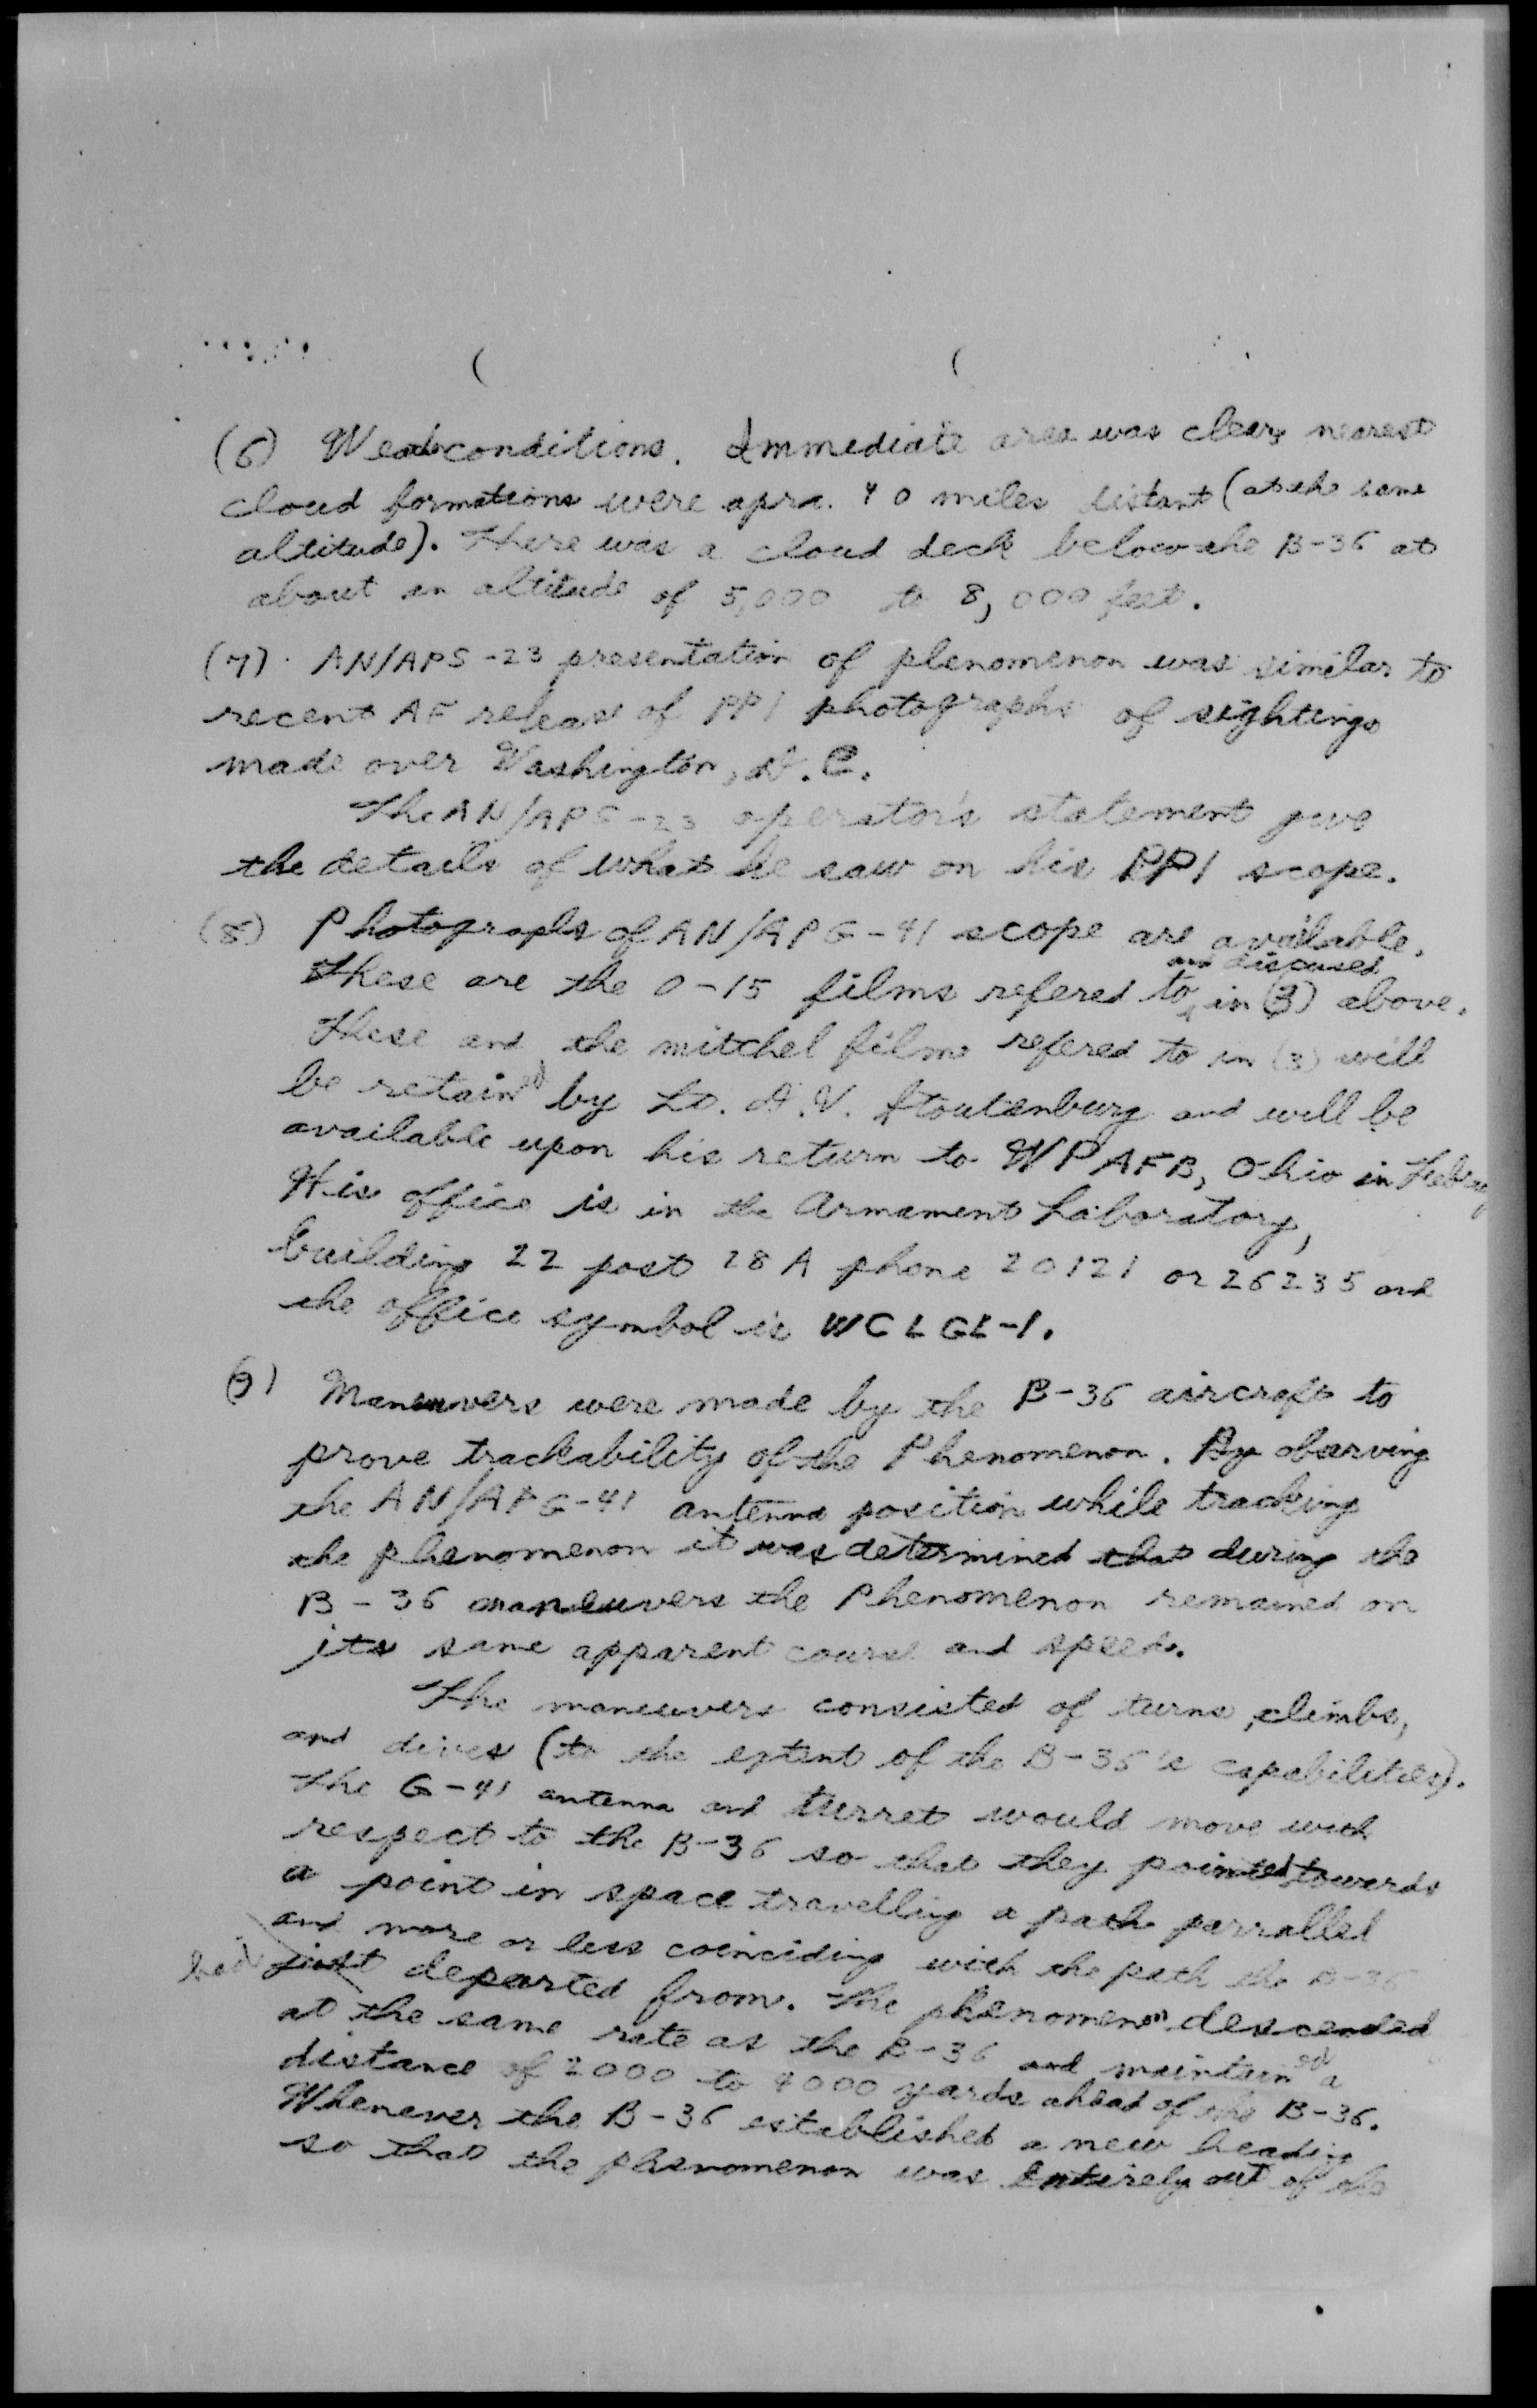 (6) Weatherconditions. Immediate area was clear, nearest
cloud formations were apra. 40 miles distant (at the same
altitude). There was a cloud deck below the B-36 at
about an altitude of 5,000 to 8,000 feet.
(7). AN/APS-23 presentation of phenomenon was similar to
recent AF release of PPI photographs of sightings
made over Washington, D.C.
The AN/APS-23 operator's statement give
the details of what he saw on his PPI scope.
(8) Photographs of AN/APG-41 scope are available.
These are the O-15 films refered to and discused in (3) above.
These and the mitchel films refered to in (3) will
be retained by Lt. D.V. Stoutenburg and will be
available upon his return to WPAFB, Ohio in
His office is in the Armament Laboratory,
building 22 post 28A phone 20121 or 26235 and
the office symbol is WCLGL-1.
(9) Maneuvers were made by the B-36 aircraft to
prove trackability of the Phenomenon. By observing
the AN/APG-41 antenna position while tracking
the phenomenon it was determined that during the
B-36 maneuvers the Phenomenon remained on
its same apparent course and speed.
The maneuvers consisted of turns, climbs,
and dives (to the extent of the B-36's capabilities).
The G-41 antenna and turret would move with
respect to the B-36 so that they pointed towards
a point in space travelling a path parralled
and more or less coinciding with the path the B-36
had just departed from. The phenomenon descended
at the same rate as the B-36 and maintained a
distance of 2000 to 4000 yards ahead of the B-36.
Whenever the B-36 established a new heading
so that the phenomenon was entirely out of the